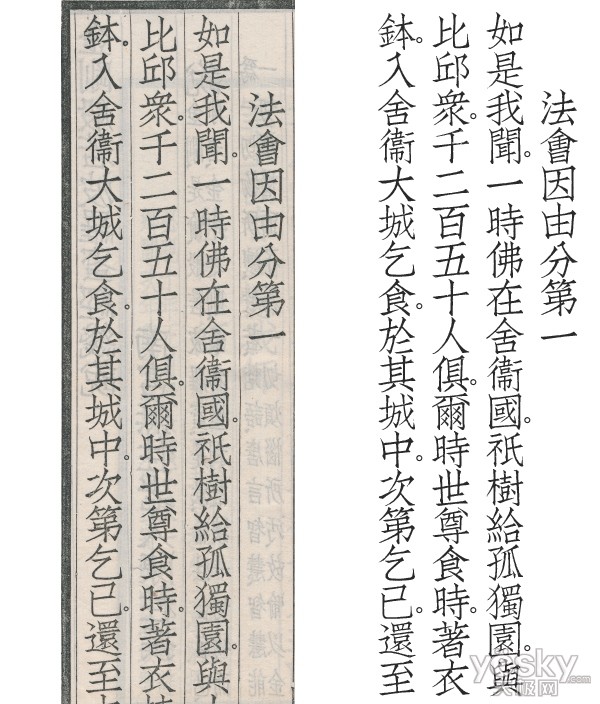 法會因由分第一
如是我聞。一時佛在舍衞國。祇樹給孤獨園。與
比邱衆。千二百五十人俱。爾時世尊食時。著衣
鉢。入舍衞大城乞食。於其城中。次第乞已。還至
法會因由分第一
如是我聞。一時佛在舍衞國。祇樹給孤獨園。與
比邱衆。千二百五十人俱。爾時世尊食時。著衣
鉢。入舍衞大城乞食。於其城中。次第乞已。還至
yesky
天极网